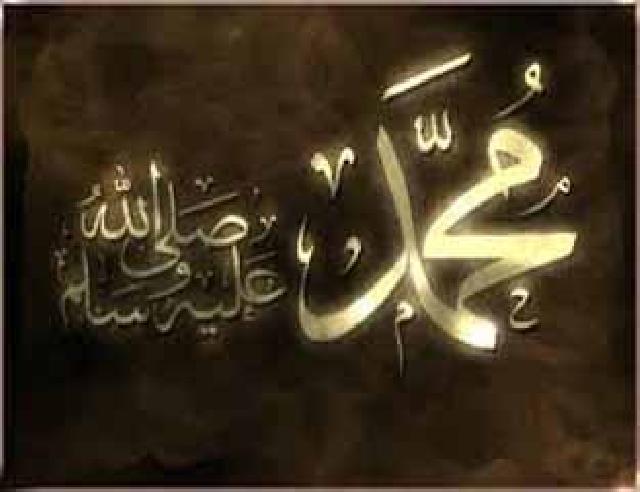 مُحَمَّد
صَلَّى اللّٰهُ
عَلَيْهِ وَسَلَّم